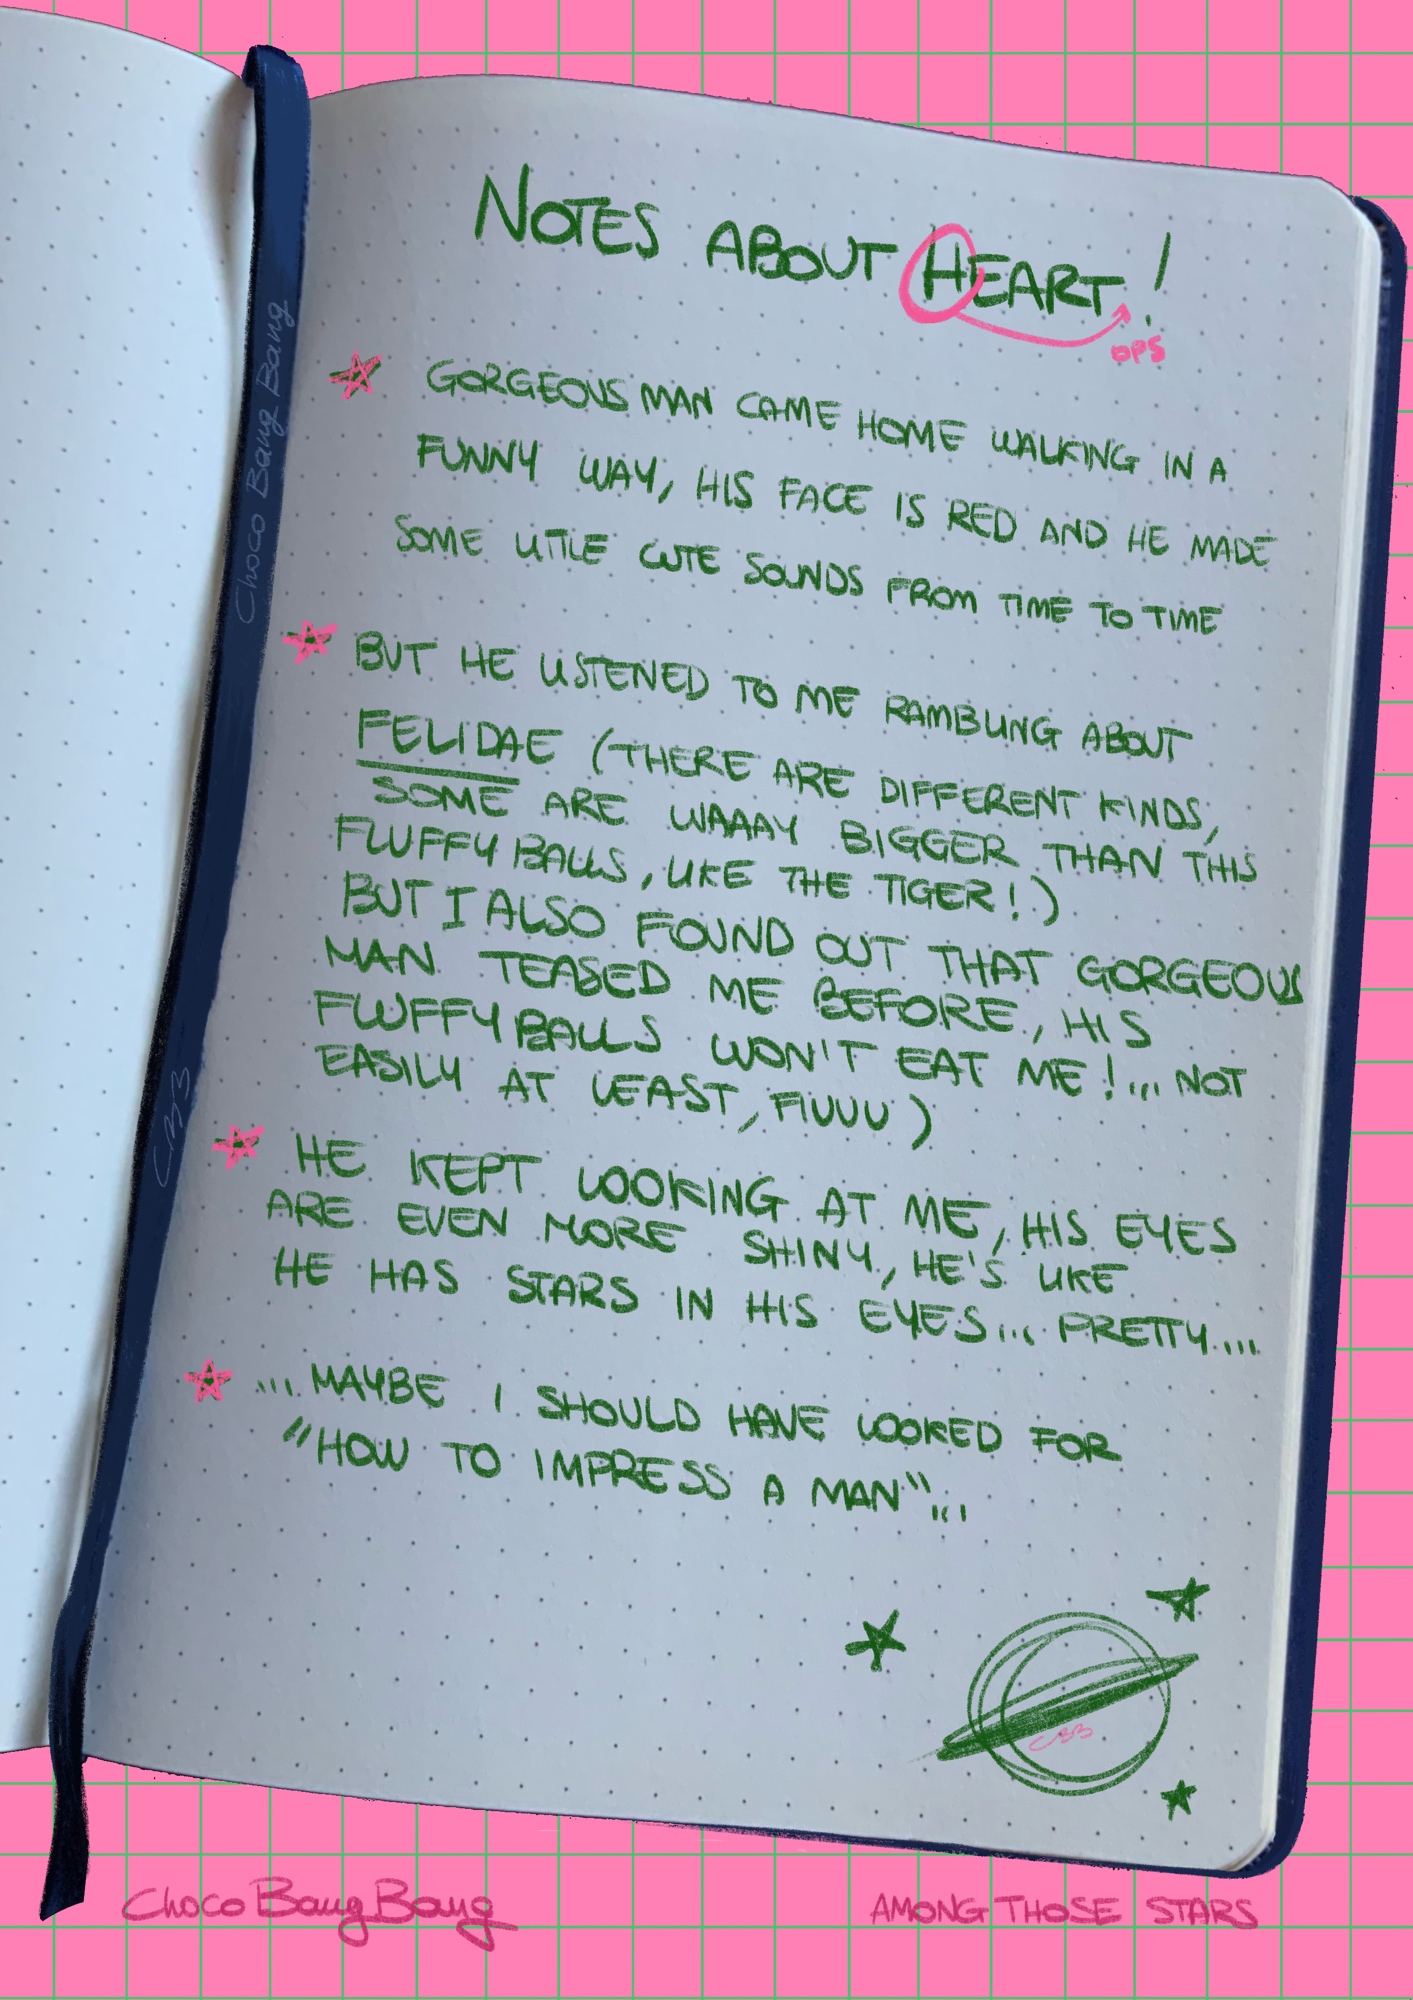 NOTES ABOUT HEART.!
OPS
GORGEOUS MAN CAME HOME WALKING IN A
FUNNY WAY, HIS FACE IS RED AND HE MADE
SOME LITTLE CUTE SOUNDS FROM TIME TO TIME
BUT HE LISTENED TO ME RAMBLING ABOUT
FELIDAE (THERE ARE DIFFERENT KINDS,
SOME ARE WAAAY BIGGER THAN THIS
FLUFFY BALLS, LIKE THE TIGER!)
BUT I ALSO FOUND OUT THAT GORGEOUS
MAN TEASED ME BEFORE, HIS
FLUFFY BALLS WON'T EAT ME!... NOT
EASILY AT LEAST, FIUUU)
HE KEPT LOOKING AT ME, HIS EYES
ARE EVEN MORE SHINY, HE'S LIKE
HE HAS STARS IN HIS EYES... PRETTY....
... MAYBE I SHOULD HAVE LOOKED FOR
"HOW TO IMPRESS A MAN"...
CBB
Choco Bang Bang
CBB
Choco Bang Bang
AMONG THOSE STARS